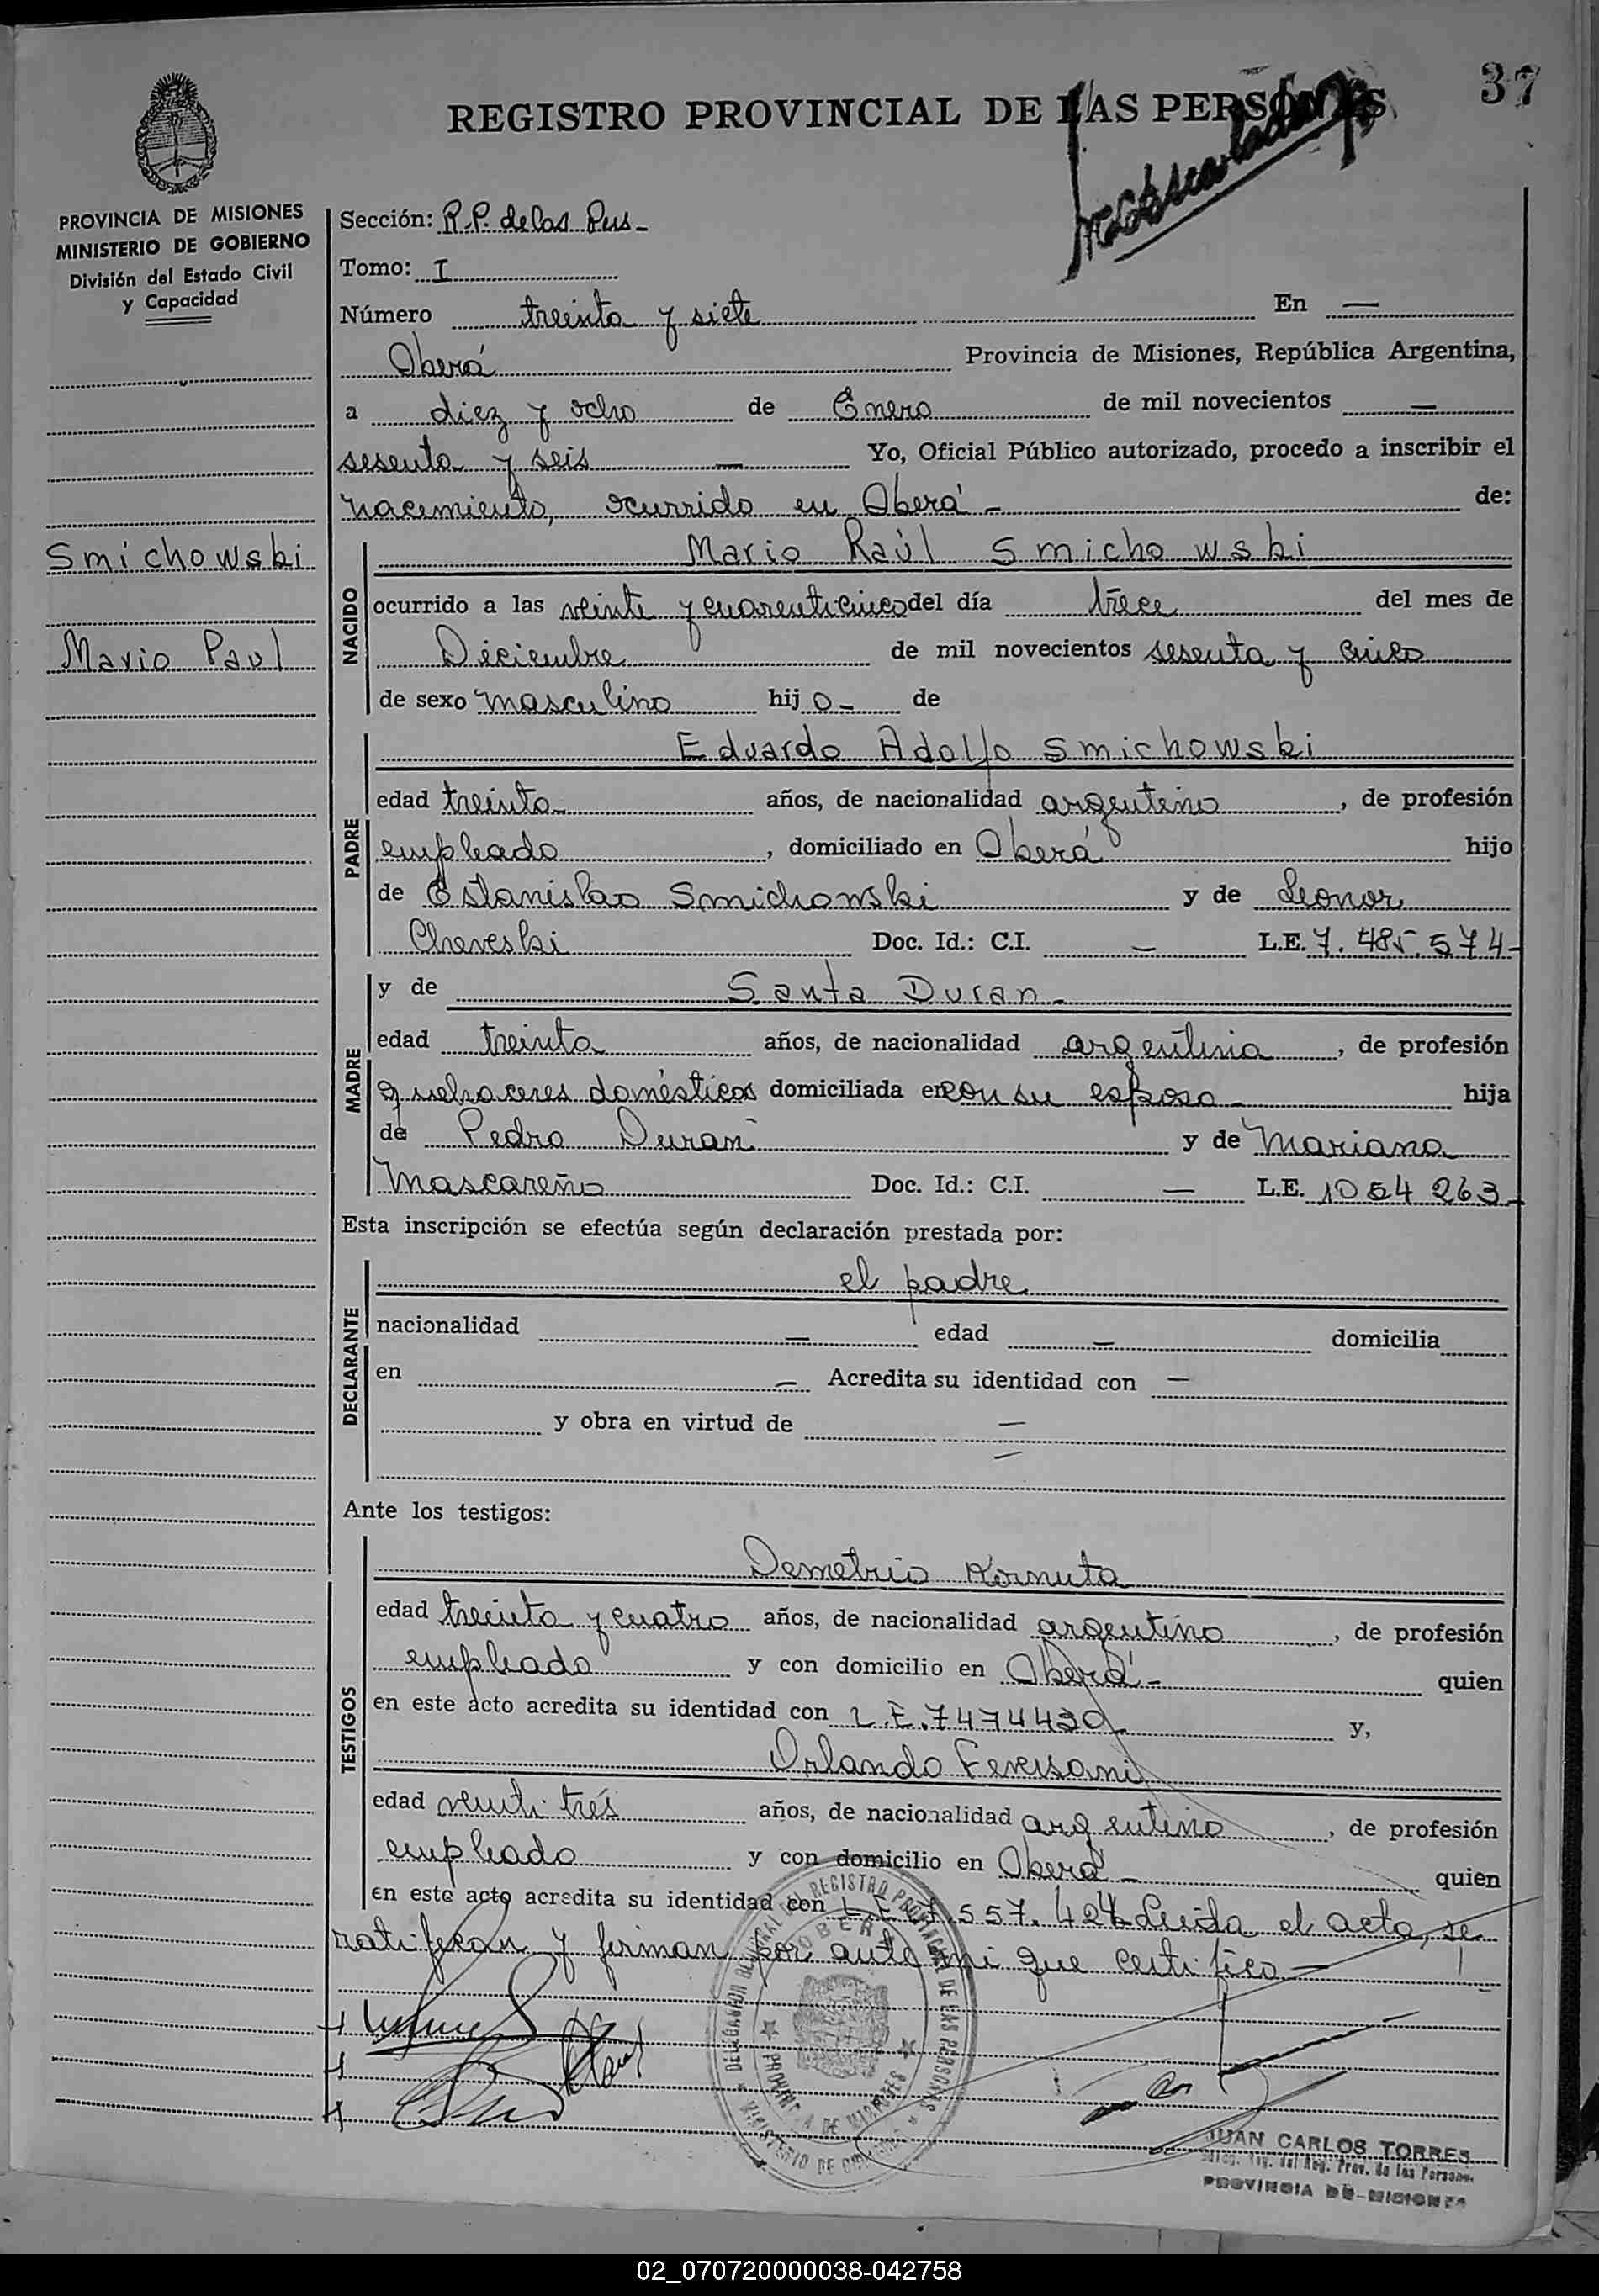 37
REGISTRO PROVINCIAL DE LAS PERSONAS
PROVINCIA DE MISIONES
MINISTERIO DE GOBIERNO
División del Estado Civil
y Capacidad
Smichowski
Mario Raul
Sección: R.P. de las Pers -
Tomo: I
Número treinta y siete En —
Oberá Provincia de Misiones, República Argentina,
a diez y ocho de Enero de mil novecientos —
sesenta y seis — Yo, Oficial Público autorizado, procedo a inscribir el
nacimiento, ocurrido en Oberá - de:
NACIDO
Mario Raúl Smichowski
ocurrido a las veinte y cuarenticinco del día trece del mes de
Diciembre de mil novecientos sesenta y cinco
de sexo masculino hijo - de
PADRE
Eduardo Adolfo Smichowski
edad treinta años, de nacionalidad argentino, de profesión
empleado, domiciliado en Oberá hijo
de Estanislao Smichowski y de Leonor
Cheveski Doc. Id.: C.I. — L.E. 7.485.574-
MADRE
y de Santa Duran -
edad treinta años, de nacionalidad argentina, de profesión
quehaceres domésticos domiciliada en con su esposo - hija
de Pedro Duran y de Mariana
Mascareño Doc. Id.: C.I. — L.E. 1054263-
Esta inscripción se efectúa según declaración prestada por:
DECLARANTE
el padre
nacionalidad — edad — domicilia
en — Acredita su identidad con —
y obra en virtud de —
—
Ante los testigos:
TESTIGOS
Demetrio Kornuta
edad treinta y cuatro años, de nacionalidad argentino, de profesión
empleado y con domicilio en Oberá - quien
en este acto acredita su identidad con L.E. 7474430 y,
Orlando Feversani
edad veinti trés años, de nacionalidad argentino, de profesión
empleado y con domicilio en Oberá - quien
en este acto acredita su identidad con L.E. 7.557.424 Leida el acta, se
ratifican y firman por ante mi que certifico —
DELEGACIÓN REGIONAL REGISTRO PROVINCIAL DE LAS PERSONAS
OBERÁ
PROVINCIA DE MISIONES
MINISTERIO DE GOBIERNO
JUAN CARLOS TORRES
Reg. del Reg. Prov. de las Personas
PROVINCIA DE MISIONES
02_070720000038-042758